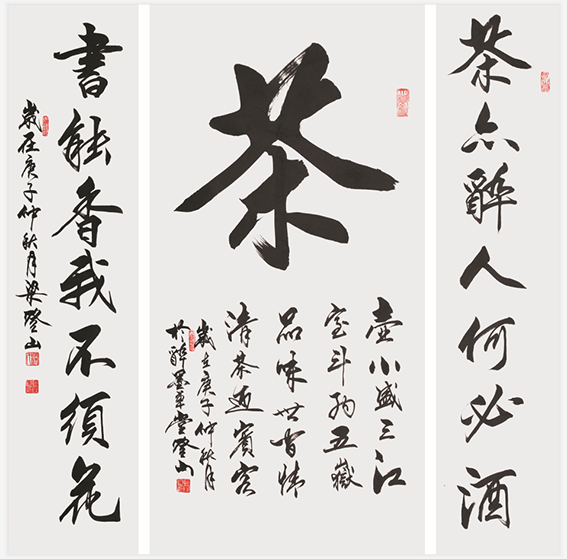 茶亦醉人何必酒
茶
壶小盛三江
室斗納五嶽
品味世百情
清茶迎賓客
歲在庚子仲秋月
於醉墨草堂登山
書能香我不須花
歲在庚子仲秋月梁登山